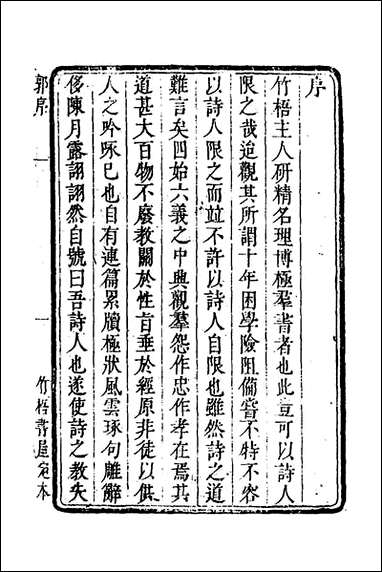 序
竹梧主人研精名理博極羣書者也此豈可以詩人
限之哉迨觀其所謂十年困學險阻備嘗不特不容
以詩人限之而竝不許以詩人自限也雖然詩之道
難言矣四始六義之中興觀羣怨作忠作孝在焉其
道甚大百物不廢教關於性旨垂於經原非徒以供
人之吟啄巳也自有連篇累牘極狀風雲琢句雕辭
侈陳月露詡詡然自號曰吾詩人也遂使詩之教失
郭序
一
竹梧書屋定本